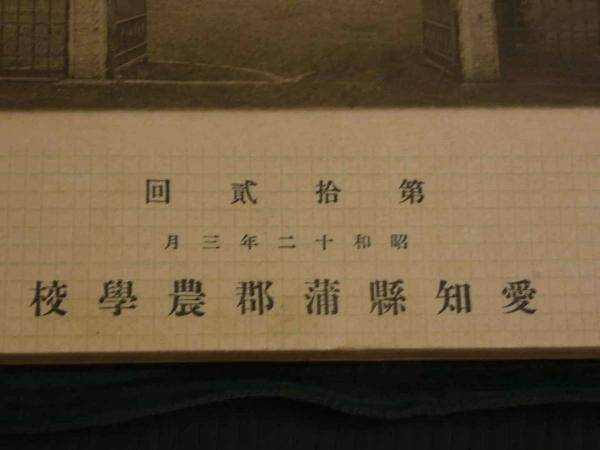 第拾貳回
昭和十二年三月
愛知縣蒲郡農學校